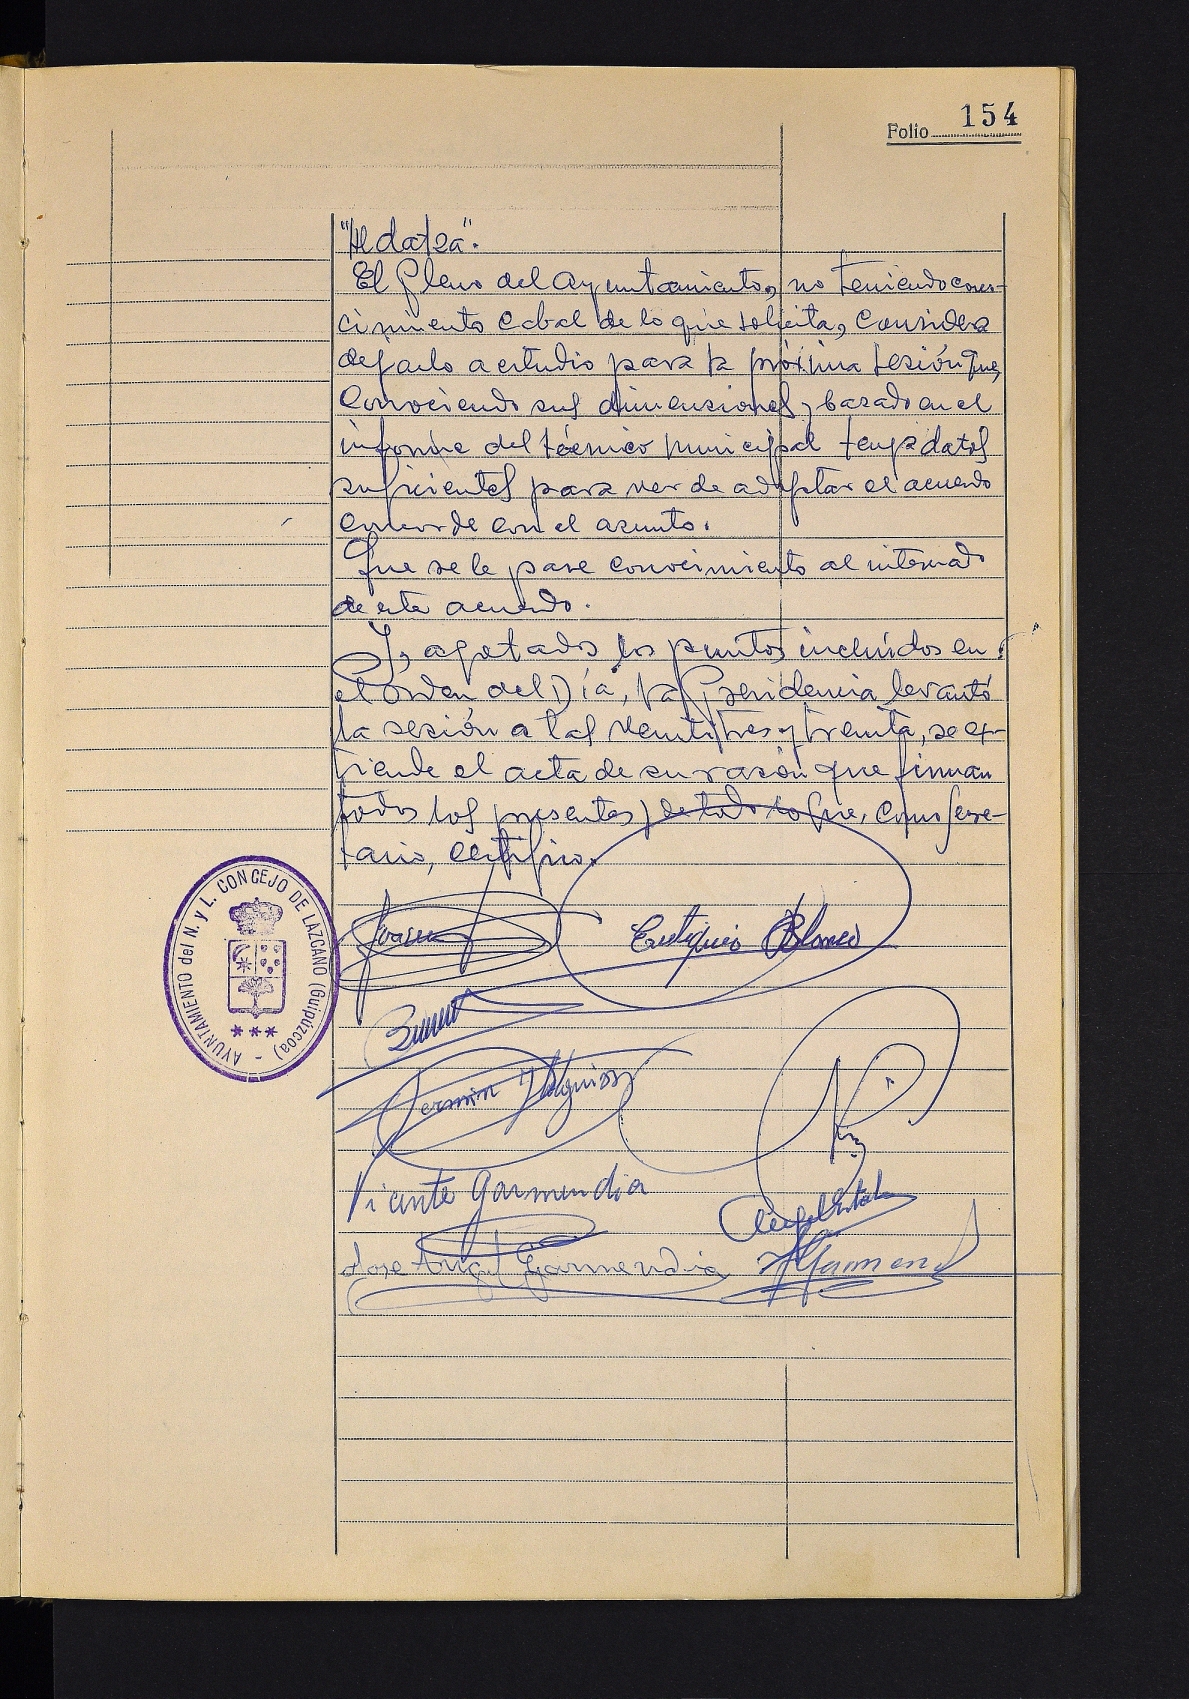 Folio 154
"Aldatza".
El Pleno del Ayuntamiento, no teniendo cono-
cimiento cabal de lo que solicita, considera
dejarlo a estudio para la próxima sesión que,
conociendo sus dimensiones y basado en el
informe del técnico municipal tenga datos
suficientes para ver de adoptar el acuerdo
concorde con el asunto.
Que se le pase conocimiento al interesado
de este acuerdo.
Y, agotados los puntos incluídos en
el Orden del Día, la Presidencia levantó
la sesión a las veintitres y treinta, se ex-
tiende el acta de su razón que firman
todos los presentes, de todo lo que, como Secre-
tario, certifico.
AYUNTAMIENTO del N. y L. CONCEJO DE LAZCANO (Guipúzcoa) -
Eustiquio Blanco
Fermin
Vicente Garmendia
Jose Angel Garmendia